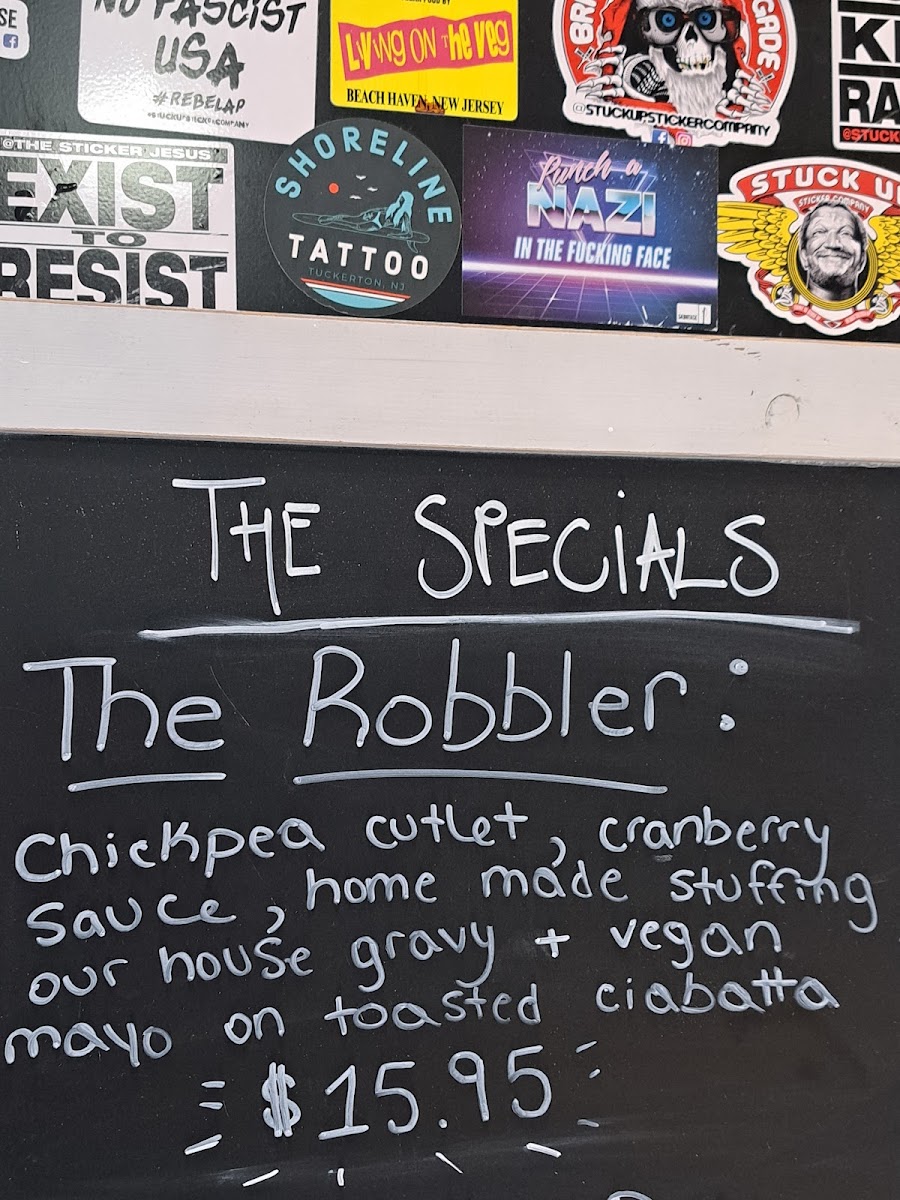 SE
NO FASCIST
USA
#REBELAP
LiVING ON THE VEG
BEACH HAVEN, NEW JERSEY
GADE
@STUCKUPSTICKERCOMPANY
RA
@THE STICKER JESUS
EXIST
TO
RESIST
SHORELINE
TATTOO
TUCKERTON, NJ
Punch a
NAZI
IN THE FUCKING FACE
STUCK U
STICKER COMPANY
THE SPECiALS
The Robbler:
Chickpea cutlet, cranberry
sauce, home made stuffing
our house gravy + vegan
mayo on toasted ciabatta
$15.95